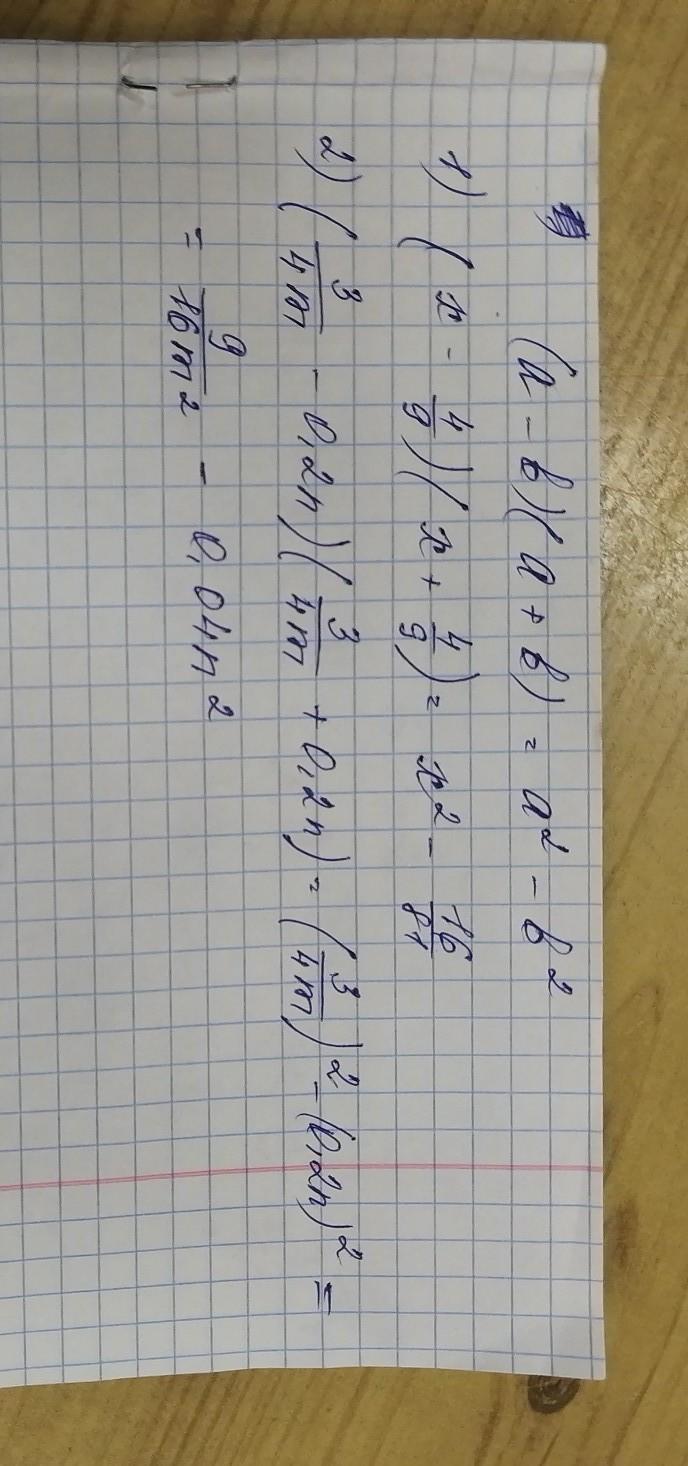 (a - b)(a + b) = a² - b²
1) (x - 4/9)(x + 4/9) = x² - 16/81
2) (3/4m - 0,2n)(3/4m + 0,2n) = (3/4m)² - (0,2n)² =
= 9/16m² - 0,04n²